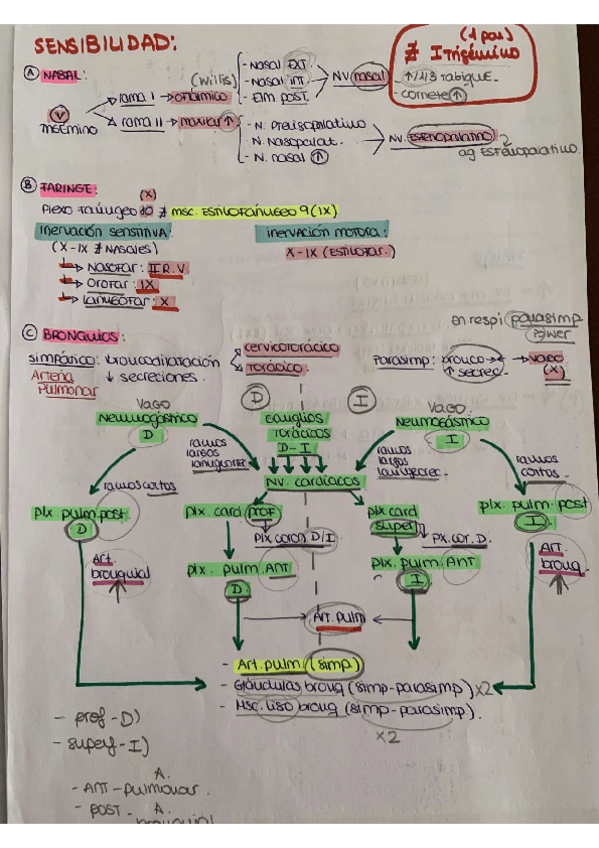 SENSIBILIDAD:
(1 par)
≠ I Trigémino
- ↑/1/3 Tabique.
- cornete ↑
A NASAL:
(Willis)
- Nasal EXT.
- Nasal INT.
- Etm. POST.
NV nasal
V
rama I → oftálmico
rama II → maxilar ↑
- N. nasopalat.
- N. nasal ↑
NV. Esfenopalatino
ag Esfenopalatino
B FARINGE:
(X)
Plexo faríngeo 10 ≠ msc. ESTILOFARÍNGEO 9 (IX)
inervación sensitiva:
inervación motora:
(X-IX ≠ Nasales)
X-IX (Estilofar.)
→ Nasofar: II R.V
→ Orofar: IX
→ laringofar: X
en respi parasimp
power
C BRONQUIOS:
simpático: broncodilatación
↓ secreciones.
cervicotorácico
torácico
Arteria
Pulmonar
Parasimp: bronco →←
↑ secrec.
→ vago
(X)
D
I
Vago
Neumogástrico
D
Ganglios
Torácicos
D-I
Vago
Neumogástrico
I
ramos
largos
laringorec.
ramos
largos
laringorec.
ramos cortos
ramos
cortos.
NV. cardíacos
plx pulm.post
D
plx. card prof
plx card
super
plx. pulm. post
I
plx. coron. D/I
Px. cor. D.
Art.
bronquial
plx. pulm. ANT
D.
plx. pulm. ANT
I
Art.
bronq.
Art. pulm
- Art. pulm (simp)
- Glándulas bronq (simp-parasimp) x2
- Msc. liso bronq (simp-parasimp).
x2
- prof-D)
- superf-I)
A.
- ANT-pulmonar.
- POST- A.
bronquial